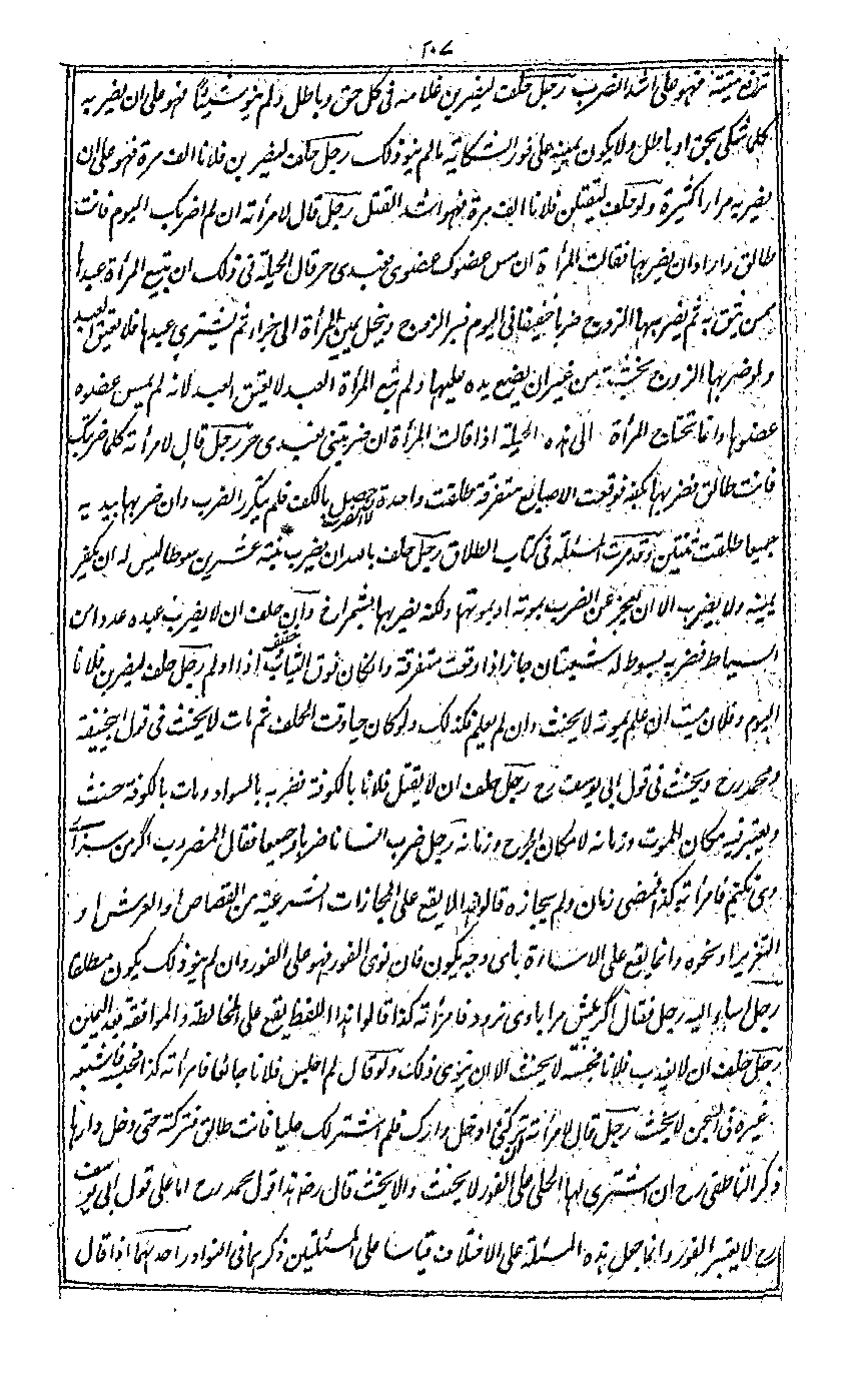 ٢٠٧
ترفع ميتة فهو على اشد الضرب رجل حلف ليضربن غلامه فى كل حق وباطل ولم ينو شيئا فهو على ان يضربه
كلما شكى بحق او باطل ولا يكون يمينه على فور الشكاية مالم ينو ذلك رجل حلف ليضربن فلانا الف مرة فهو على ان
يضربه مرارا كثيرة ولو حلف ليقتلن فلانا الف مرة فهو اشد القتل رجل قال لامرأته ان لم اضربك اليوم فانت
طالق واراد ان يضربها فقالت المرأة ان مس عضوك عضوى فعبدى حر قال الحيلة فى ذلك ان تبيع المرأة عبدها
ممن تثق به ثم يضربها الزوج ضربا خفيفا فى اليوم فيبر الزوج وينحل يمين المرأة الى جزاء ثم تشترى عبدها فلا يعتق العبد
ولو ضربها الزوج بخشبة من غير ان يضع يده عليها ولم تبع المرأة العبد لا يعتق العبد لانه لم يمس عضوه
عضوها وانما تحتاج المرأة الى هذه الحيلة اذا قالت المرأة ان ضربتنى فعبدى حر رجل قال لامرأته كلما ضربتك
فانت طالق فضربها بكفه فوقعت الاصابع متفرقة طلقت واحدة لان الضرب حصل بالكف فلم يتكرر الضرب وان ضربها بيديه
جميعا طلقت ثنتين وقد مرت المسئلة فى كتاب الطلاق رجل حلف بالله ان يضرب بنته عشرين سوطا ليس له ان يكفر
يمينه ولا يضرب الا ان يعجز عن الضرب بموته او بموتها ولكنه يضربها بشمراخ وان حلف ان لا يضرب عبده عددا من
السياط فضربه بسوط له شعبتان جاز اذا وقعت متفرقة وان كان فوق الثياب خفف اذا اولم رجل حلف ليضربن فلانا
اليوم وفلان ميت ان علم بموته لا يحنث وان لم يعلم فكذلك ولو كان حيا وقت الحلف ثم مات لا يحنث فى قول ابيحنيفة
ومحمد رح ويحنث فى قول ابى يوسف رح رجل حلف ان لا يقتل فلانا بالكوفة فضربه بالسواد ومات بالكوفة حنث
ويعتبر فيه مكان الموت وزمانه لا مكان الجرح وزمانه رجل ضرب انسانا ضربا وجيعا فقال المضروب اگر من سزاى
وى نكنم فامرأته كذا فمضى زمان ولم يجازه قالوا هذا لا يقع على المجازات الشرعية من القصاص او الارش او
التعزير او نحوه وانما يقع على الاساءة باى وجه يكون فان نوى الفور فهو على الفور وان لم ينو ذلك يكون مطلقا
رجل اساء اليه رجل فقال اگر بيش مرا باوى رود فامرأته كذا قالوا هذا اللفظ يقع على المخالطة والموافقة بعد اليمين
رجل حلف ان لا يعذب فلانا فحبسه لا يحنث الا ان ينوى ذلك ولو قال لم احبس فلانا جائعا فامرأته كذا فحبسه فاشبعه
غيره فى السجن لا يحنث رجل قال لامرأته ان تركتنى ادخل دارك فلم اشتر لك حليا فانت طالق فتركته حتى دخل دارها
ذكر الناطفى رح ان اشترى لها الحلى على الفور لا يحنث والا يحنث قال رض هذا قول محمد رح اما على قول ابى يوسف
رح لا يعتبر الفور وانما جعل هذه المسئلة على الاختلاف قياسا على المسئلتين ذكرهما فى النوادر احدهما اذا قال